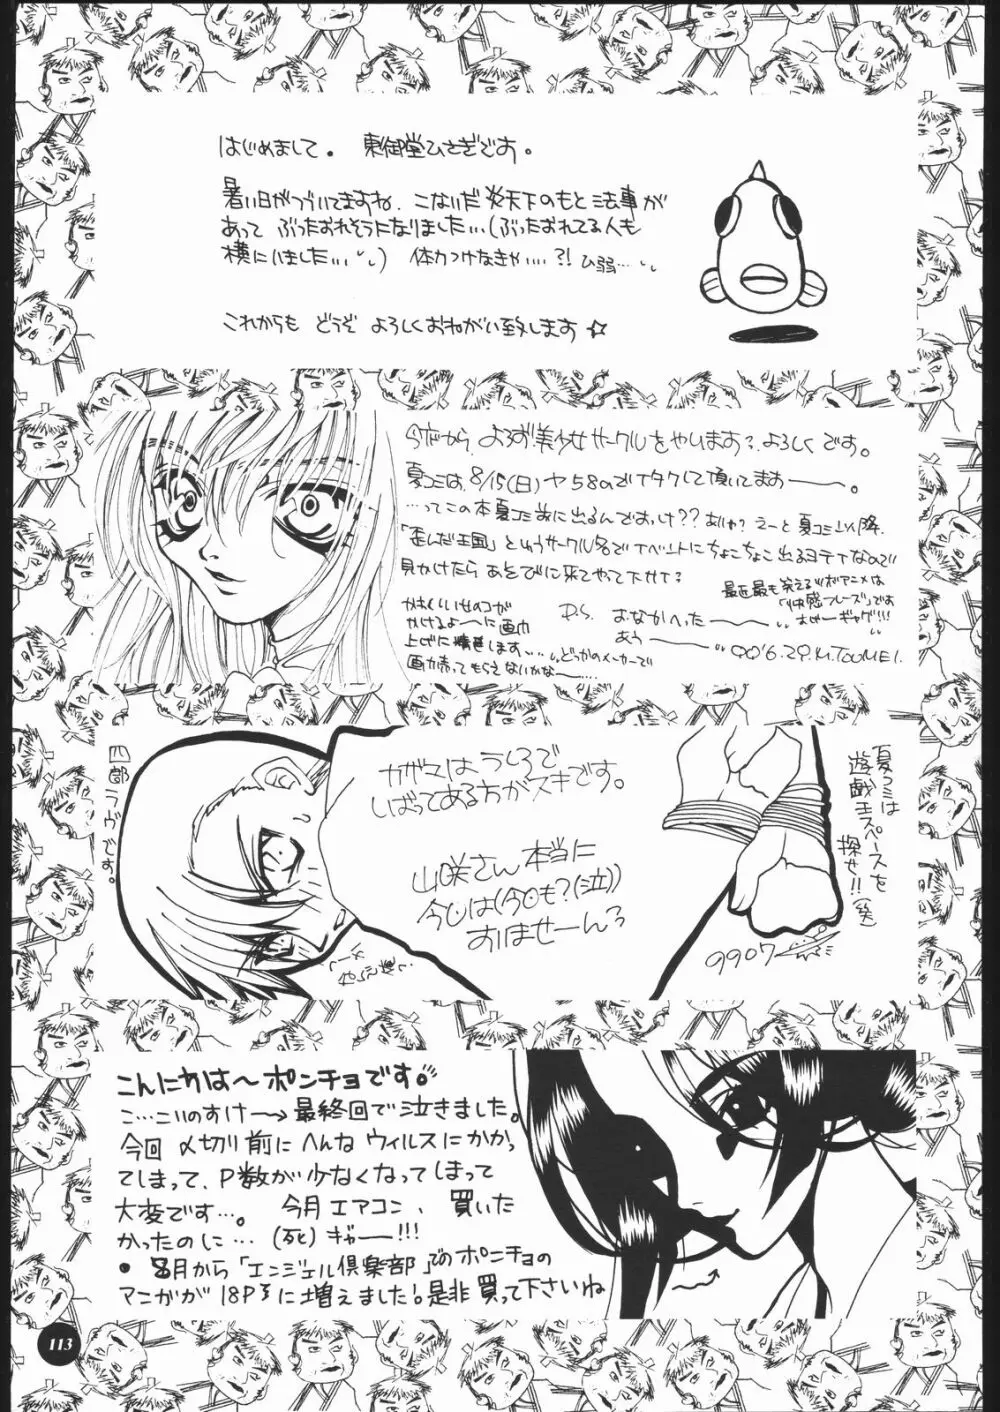 はじめまして。 東御堂ひさぎです。
暑い日がつづいてますね、こないだ炎天下のもと法事が
あって ぶったおれそうになりました…(ぶったおれてる人も
横にいました…) 体力つけなきゃ…?! ひ弱…
これからも どうぞ よろしくおねがい致します☆
今度から、よろず美少女サークルをやります?よろしくです。
夏コミは、8/15(日) ヤ58のbでイタクして頂いてますーー。
…ってこの本夏コミ前に出るんですっけ?? ありゃ? えーと 夏コミ以降、
「歪んだ王国」というサークル名でイベントにちょこちょこ出るヨテイなので
見かけたら あそびに来てやって下サイ?
最近最も笑えるツボアニメは
「快感フレーズ」です
かわいい女のコが
かけるよーーに画力
上げに精進します……
どっかのメーカーで
画力売ってもらえないかなー…
P.S. おなかへったーー
あうーー
99'6.29.M.TOOMEI.
四郎ラヴです。
カガミはうしろで
しばってある方がスキです。
山咲さん本当に
今回は(今回も?(泣))
すいませーんっ
夏コミは
遊戯王スペースを
探せ!!(笑)
9907
こんにちは〜ポンチョです。
こ…こいのすけー→最終回で泣きました。
今回 〆切り前に へんな ウィルスにかかっ
てしまって、P数が少なくなってしまって
大変です…。 今月エアコン、買いた
かったのに…(死) ギャー!!!
●8月から「エンジェル倶楽部」でのポンチョの
マンガが 18Pに増えました!是非 買って下さいね
113